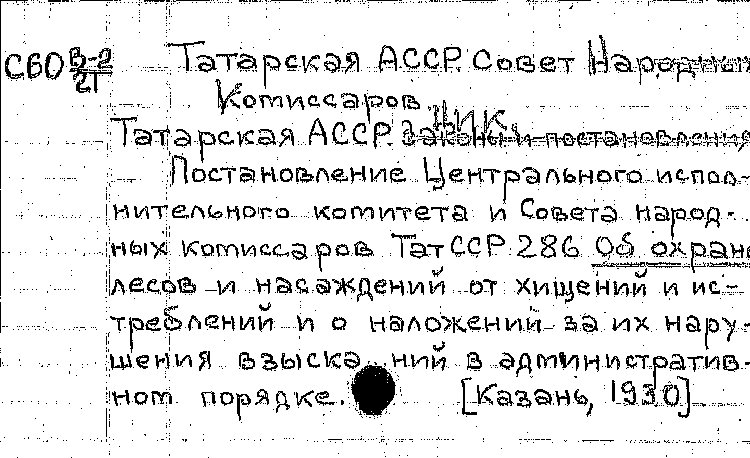 СБО В-2/21 Татарская АССР. Совет Народных
Комиссаров.
ЦИК.
Татарская АССР. Законы и постановления
Постановление Центрального испол-
нительного комитета и Совета народ-
ных комиссаров ТатССР 286 Об охране
лесов и насаждений от хищений и ис-
треблений и о наложений за их нару-
шения взыска ний в административ-
ном порядке. [Казань, 1930]